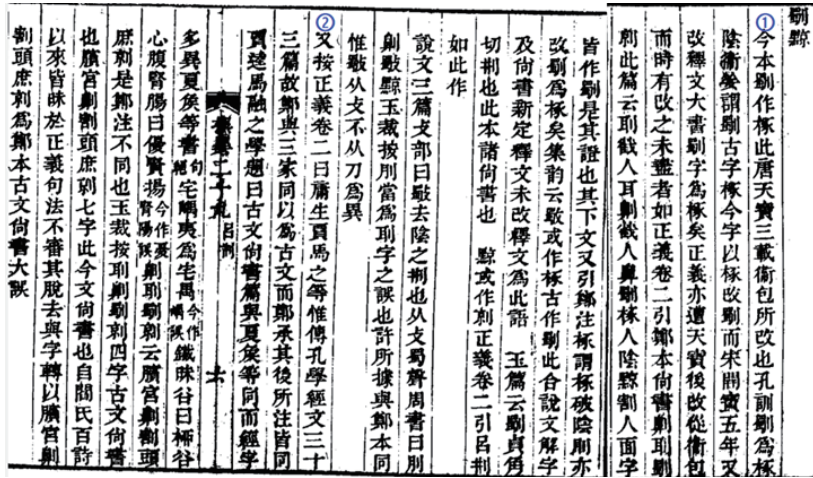 劅黥
①今本劅作椓此唐天寳三載衞包所改也孔訓劅爲椓
陰衞妄謂劅古字椓今字以椓改劅而宋開寳五年又
改釋文大書劅字爲椓矣正義亦遭天寳後改從衞包
而時有改之未盡者如正義卷二引鄭本尙書劓刵劅
剠此篇云刵截人耳劓截人鼻劅椓人陰黥割人面字
皆作劅是其證也其下文又引鄭注椓謂椓破陰則亦
改劅爲椓矣集韵云斀或作椓古作劅此合說文解字
及尙書新定釋文未改釋文爲此語 玉篇云劅貞角
切刑也此本諸尙書也 黥或作剠正義卷二引呂刑
如此作
說文三篇攴部曰斀去陰之刑也从攴蜀聲周書曰刖
劓斀黥玉裁按刖當爲刵字之誤也許所據與鄭本同
惟斀从攴不从刀爲異
②又按正義卷二曰庸生賈馬之等惟傳孔學經文三十
三篇故鄭與三家同以爲古文而鄭承其後所注皆同
賈逵馬融之學題曰古文尙書篇與夏侯等同而經字
撰異二十九 呂刑 十六
多異夏侯等書句絕宅嵎夷爲宅禺今作嵎誤鐵昧谷曰桺谷
心腹腎腸曰優賢揚今作憂腎陽誤劓刵劅剠云臏宮劓割頭
庶剠是鄭注不同也玉裁按刵劓劅剠四字古文尙書
也臏宮劓割頭庶剠七字此今文尙書也自閻氏百詩
以來皆昧於正義句法不審其脫去與字轉以臏宮劓
割頭庶剠爲鄭本古文尙書大誤